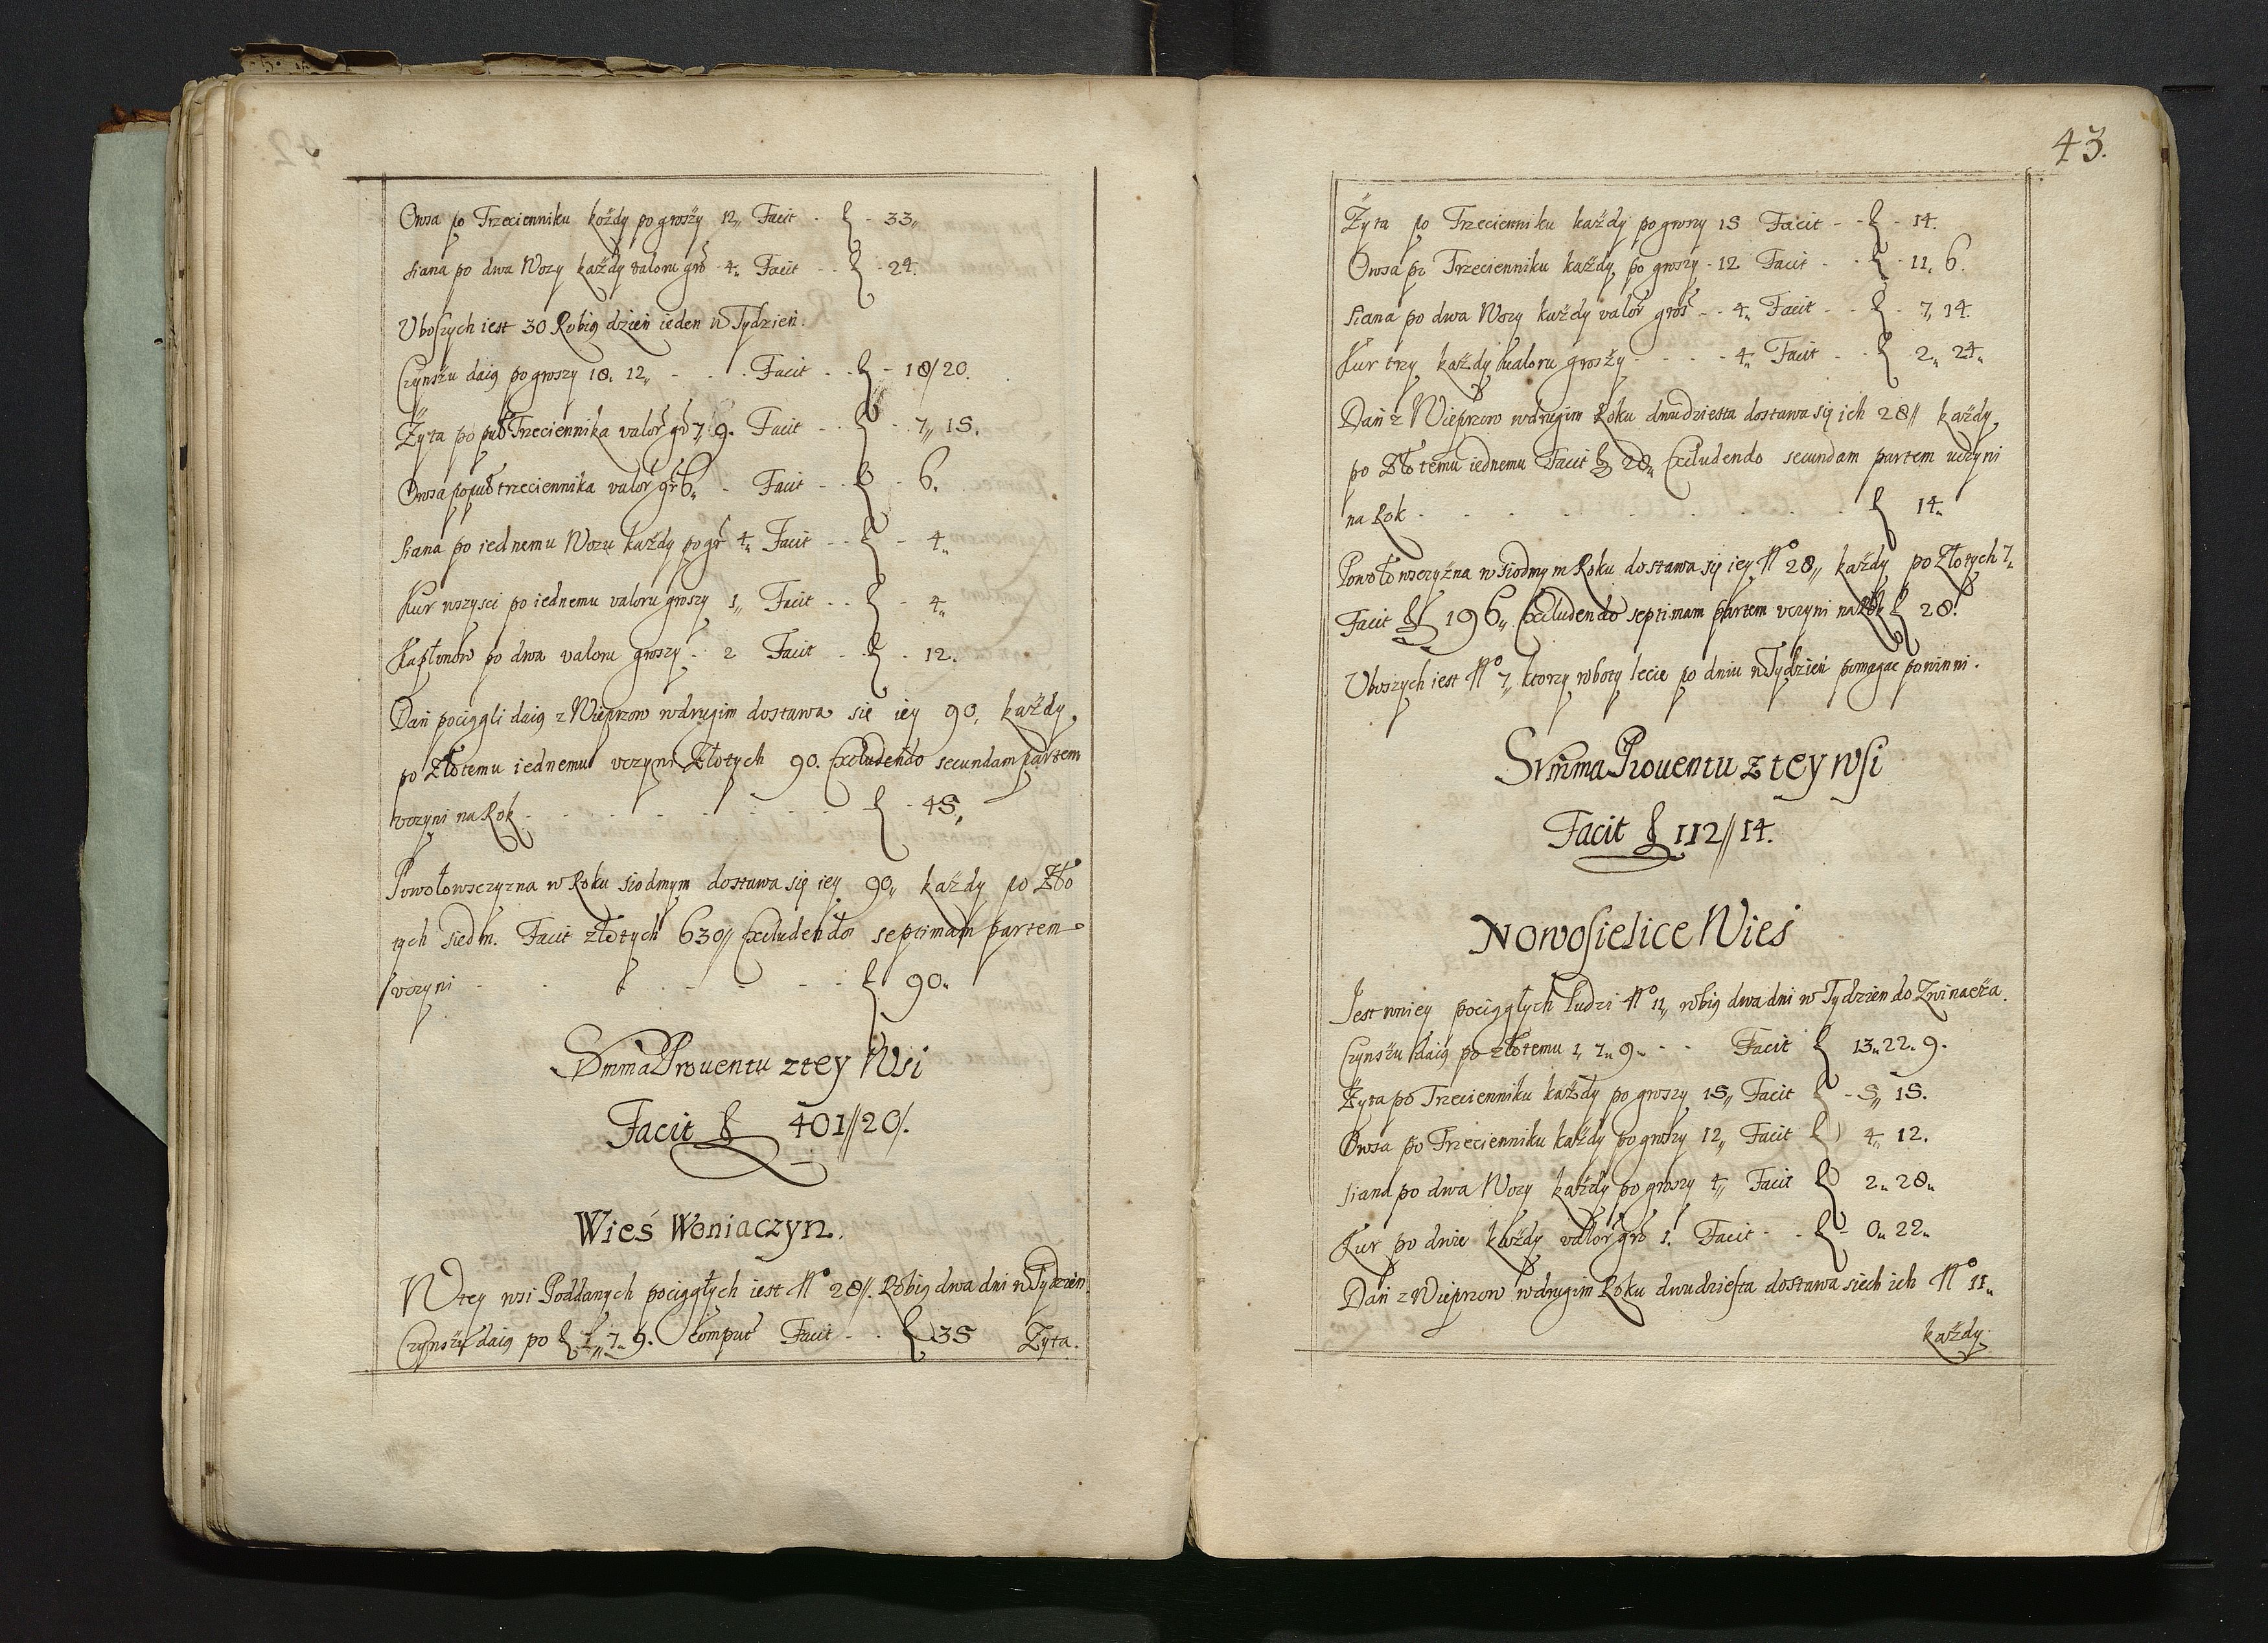 Owsa po Trzecienniku kożdy po groszy 12„ Facit - f - 33„
siana po dwa Wozy każdy valoru gro 4. Facit - - f - 24.
Vboszych iest 30 Robią dzień ieden w Tydzień.
Czynszu daią po groszy 18. 12„ - - - Facit - - f - 18/20.
Żyta po puł Trzeciennika valor gro 7„ 9. Facit - - f - 7„ 15.
Owsa po puł trzeciennika valor gr 6„ - Facit - - f - 6.
Siana po iednemu Wozu każdy po gr 4„ Facit - - f - 4„
Kur wszysci po iednemu valoru groszy 1„ Facit - - f - 4„
Kapłonow po dwa valoru groszy - 2 Facit - f - 12.
Dań pociągli daią z Wieprzow w drugim dostawa sie iey 90, każdy
po Złotemu iednemu vczyni Złotych 90. Excludendo secundam partem
vczyni na Rok - - - - - - - f - 45„
Powołowsczyzna w Roku siodmym dostawa się iey 90„ każdy po Zło
tych siedm. Facit złotych 630// Excludendo septimam partem
vczyni - - - - - - - f 90„
Summa Prouentu z tey Wsi
Facit f 401//20/.
Wieś Woniaczyn.
W tey wsi Poddanych pociągłych iest No 28//. Robią dwa dni w Tydzień
Czynszu daią po f 1„ 7„ 9. comput Facit - - f 35 Zyta.
43.
Żyta po Trzecienniku każdy po groszy 15 Facit - - f - 14.
Owsa po Trzecienniku każdy po groszy - 12 Facit - - f - 11„ 6.
Siana po dwa Wozy każdy valor gros - - 4„ Facit - - f - 7„ 14.
Kur trzy każdy valoru groszy - - - - 4„ Facit - - f 2„ 24„
Dań z Wieprzow w drugim Roku dwudziesta dostawa się ich 28// każdy
po Złotemu iednemu Facit f 28„ Excludendo secundam partem vczyni
na Rok - - - - - - - - f 14„
Powołowsczyżna w siodmym Roku dostawa się iey No 28„ każdy po Złotych 7„
Facit f 196„ Excludendo septimam partem vczyni na Rok f 28.
Vboszych iest No 7„ ktorzy roboty lecie po dniu w Tydzień pomagac powinni.
Summa Prouentu z tey wsi
Facit f 112//14.
Nowosielice Wies
Jest w niey pociągłych ludzi No 11„ robią dwa dni w Tydzien do Zwinacza.
Czynszu daią po złotemu 1, 7„ 9„ - - Facit f 13„ 22„ 9.
Żyta po Trzecienniku każdy po groszy 15„ Facit f - 5„ 15.
Owsa po Trzecienniku każdy po groszy 12„ Facit f 4„ 12.
siana po dwa Wozy każdy po groszy 4„ Facit f 2„ 28„
Kur po dwie każdy valor gro 1. Facit - - f - 0„ 22„
Dań z Wieprzow w drugim Roku dwudziesta dostawa siech ich No 11„
każdy